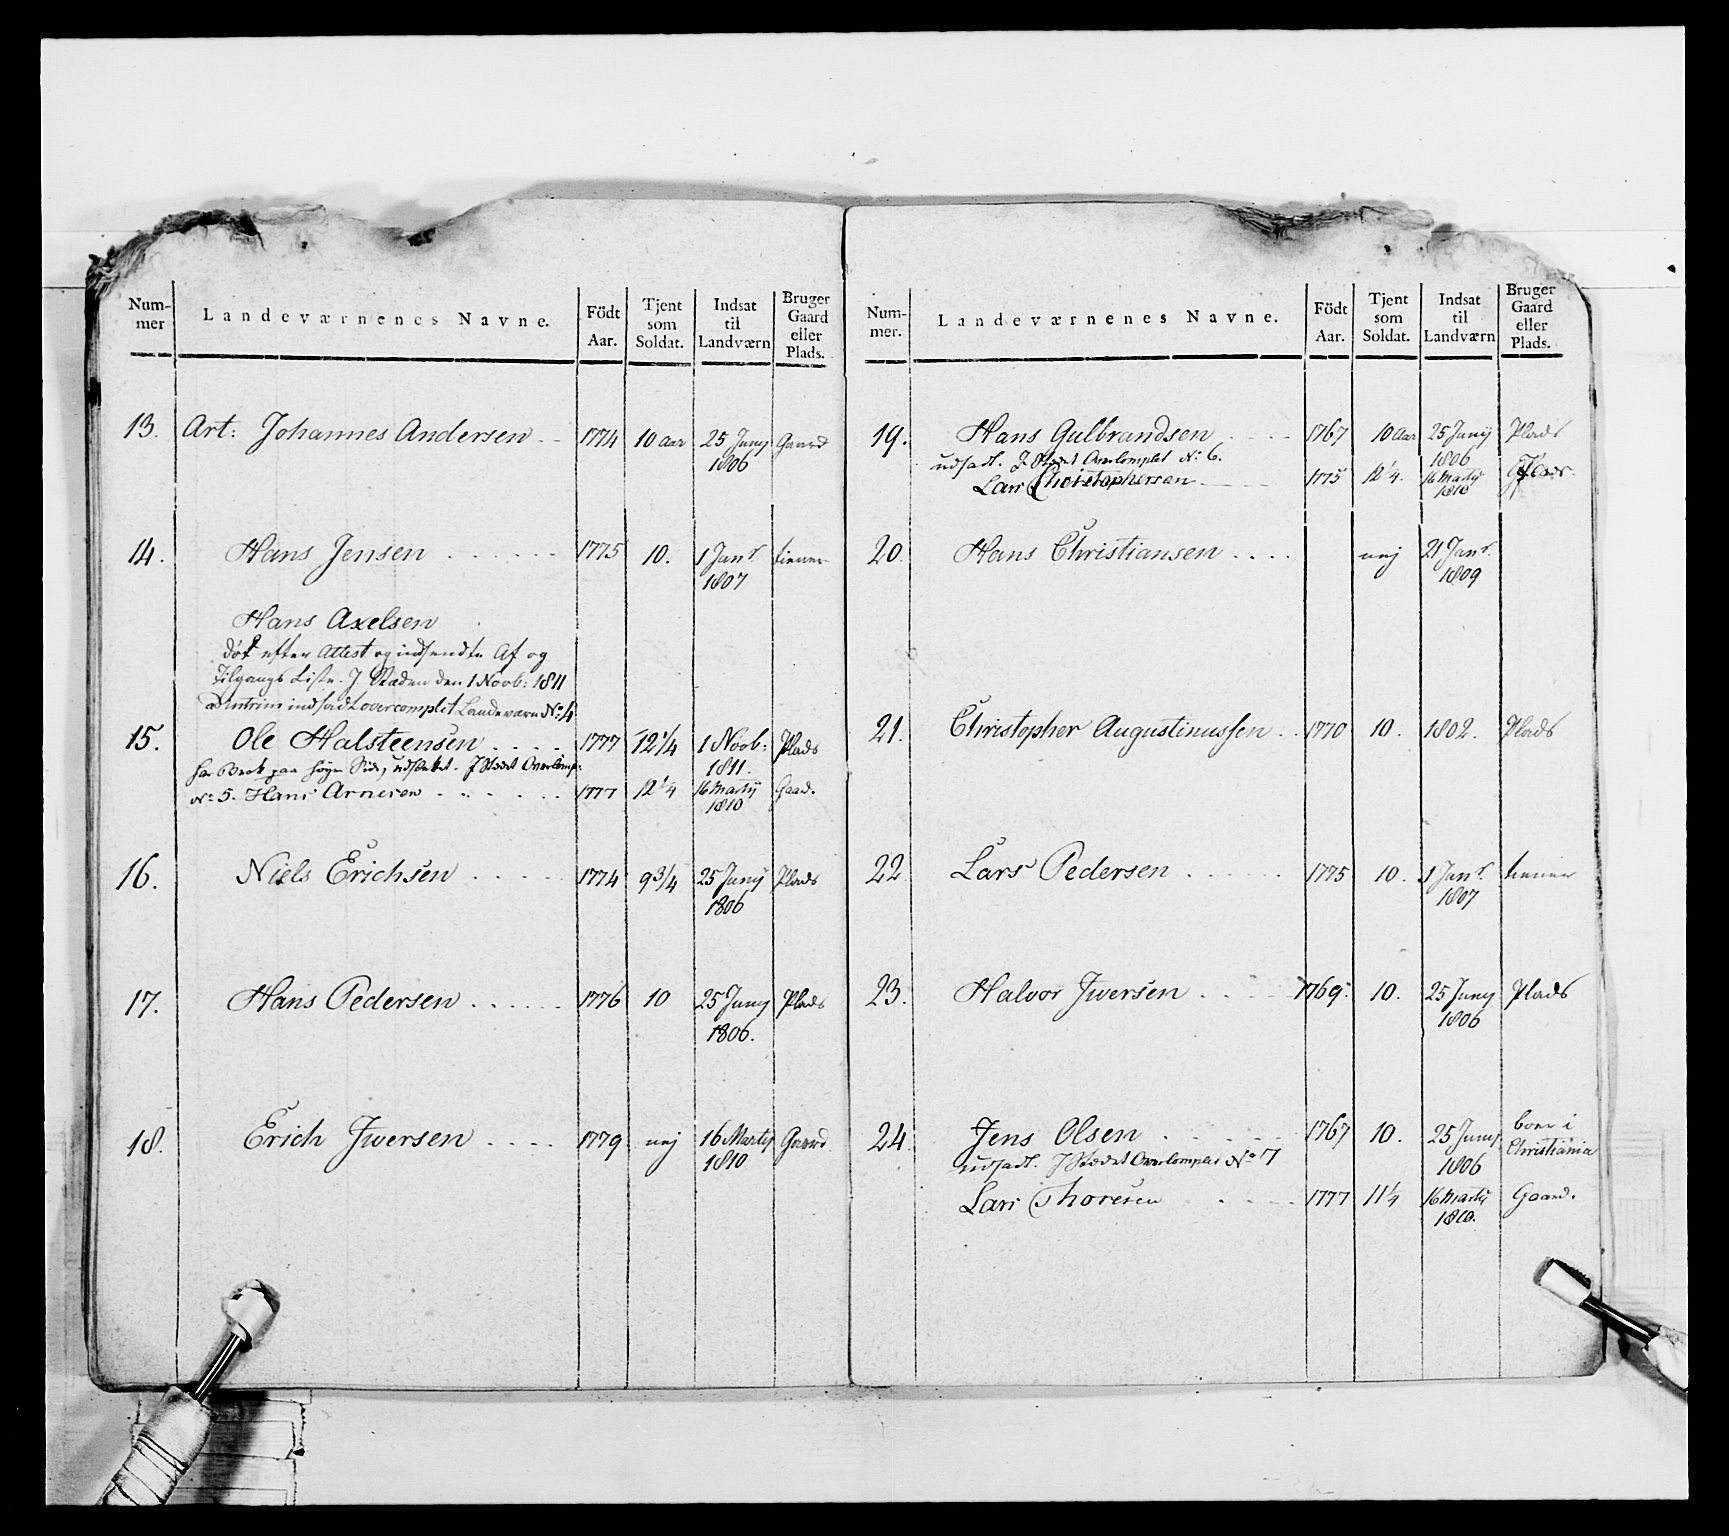 Num-
mer
Landeværnenes Navne.
Födt
Aar.
Tjent
som
Soldat.
Indsat
til
Landværn
Bruger
Gaard
eller
Plads.
13. Art: Johannes Andersen 1774 10 aar 25 Junij Gaard
1806
14. Hans Jensen 1775 10. 1 Janr. tiener
1807
Hans Axelsen
död efter Attest og indsendte Af og
Tilgangs Liste. J Stæden den 1 Novb: 1811
indsadt overcomplet Landeværn No: 4
15. Ole Halsteensen 1777 12 1/4 1 Novb: Plads
1811.
har Brok paa høyre Side, udslettet. J Stædet Overkomp:
No 5. Hans Arnesen 1777 12 1/4 16 Martij Gaard.
1810
16. Niels Erichsen 1774 9 3/4 25 Junij Plads
1806
17. Hans Pedersen 1776 10 25 Junij Plads
1806.
18. Erich Jwersen 1779 nej 16 Martij Gaard
1810
Num-
mer.
Landeværnenes Navne.
Födt
Aar.
Tjent
som
Soldat.
Indsat
til
Landværn
Bruger
Gaard
eller
Plads.
19. Hans Gulbrandsen 1767 10 Aar 25 Junij Plads
1806
udsadt. J Stædet Overkomplet No: 6.
Lars Christophersen 1775 12 1/4. 16 Martij Plads.
1810
20. Hans Christiansen nej 21 Janr.
1809
21. Christopher Augustinussen 1770 10. 1802. Plads
22 Lars Pedersen 1775 10. 1 Janr. tiener
1807
23. Halvor Jwersen 1769. 10. 25 Junij Plads
1806
24 Jens Olsen 1767 10. 25 Junij boer i
Christiania
1806
udsadt. J Stædet Overkomplet No 7
Lars Thoresen 1777 11 1/4 16 Martij Gaard.
1810.